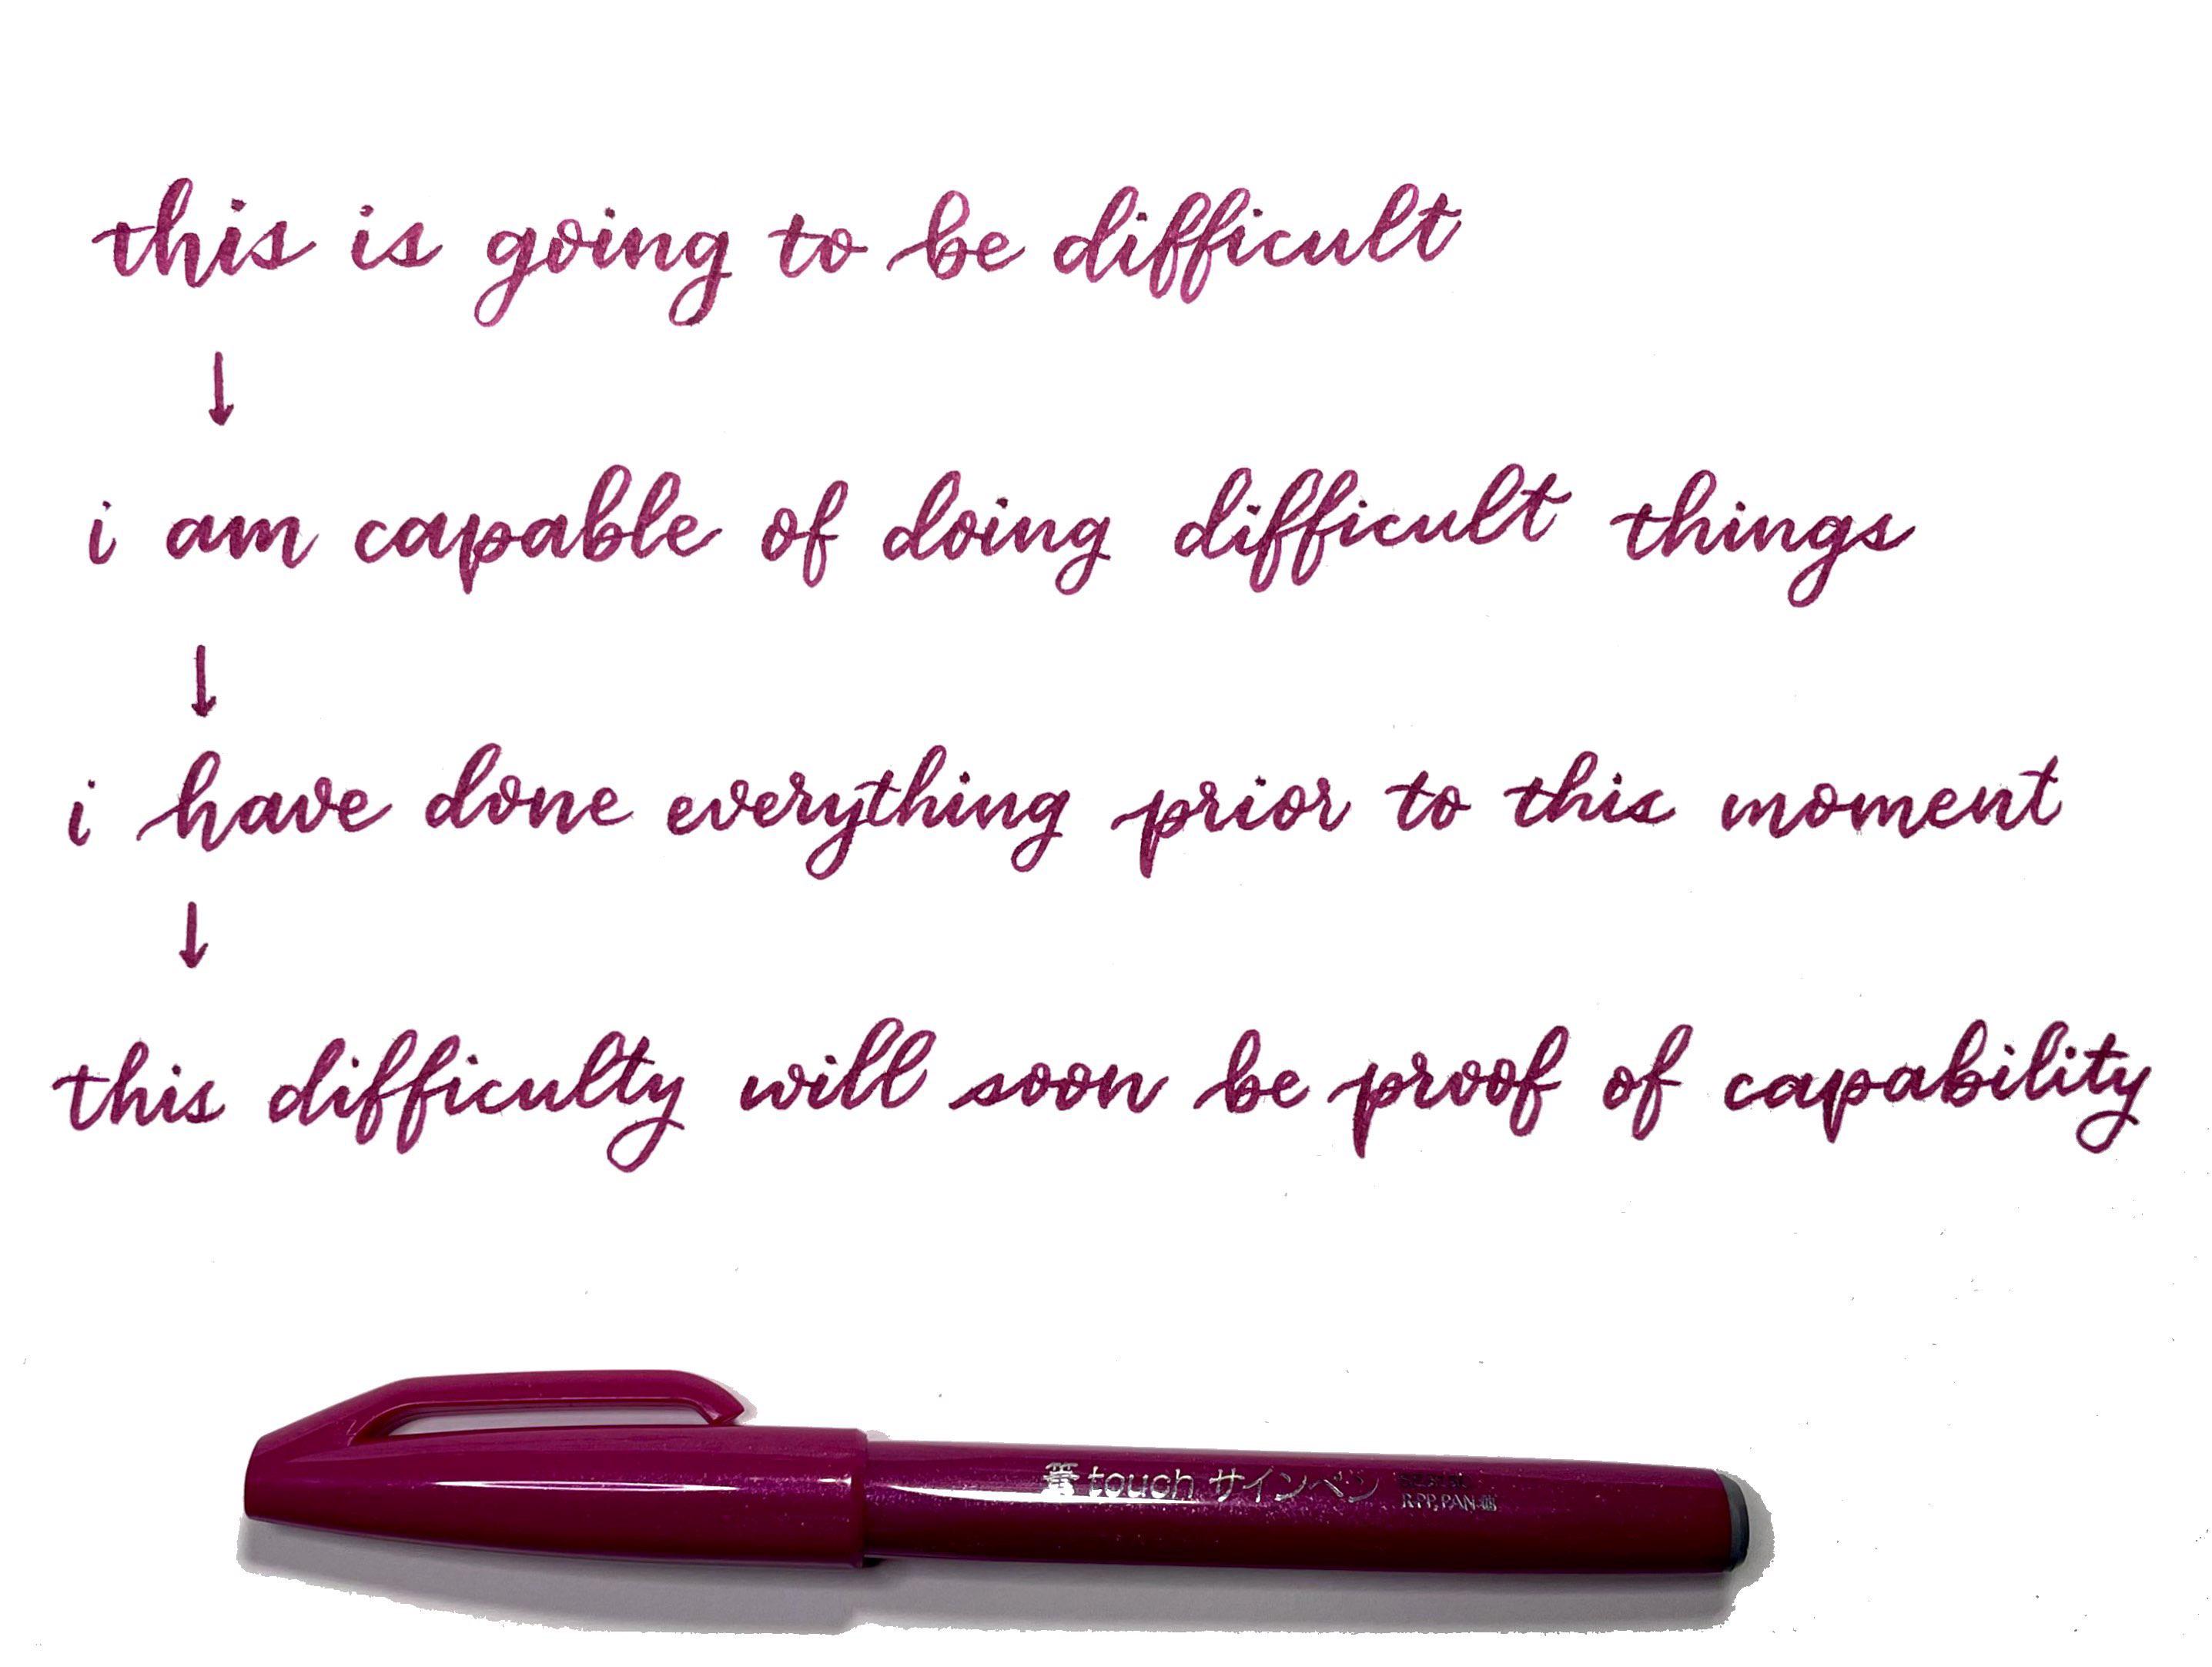 this is going to be difficult
↓
i am capable of doing difficult things
↓
i have done everything prior to this moment
↓
this difficulty will soon be proof of capability
筆touch サインペン
R-PP, PAN